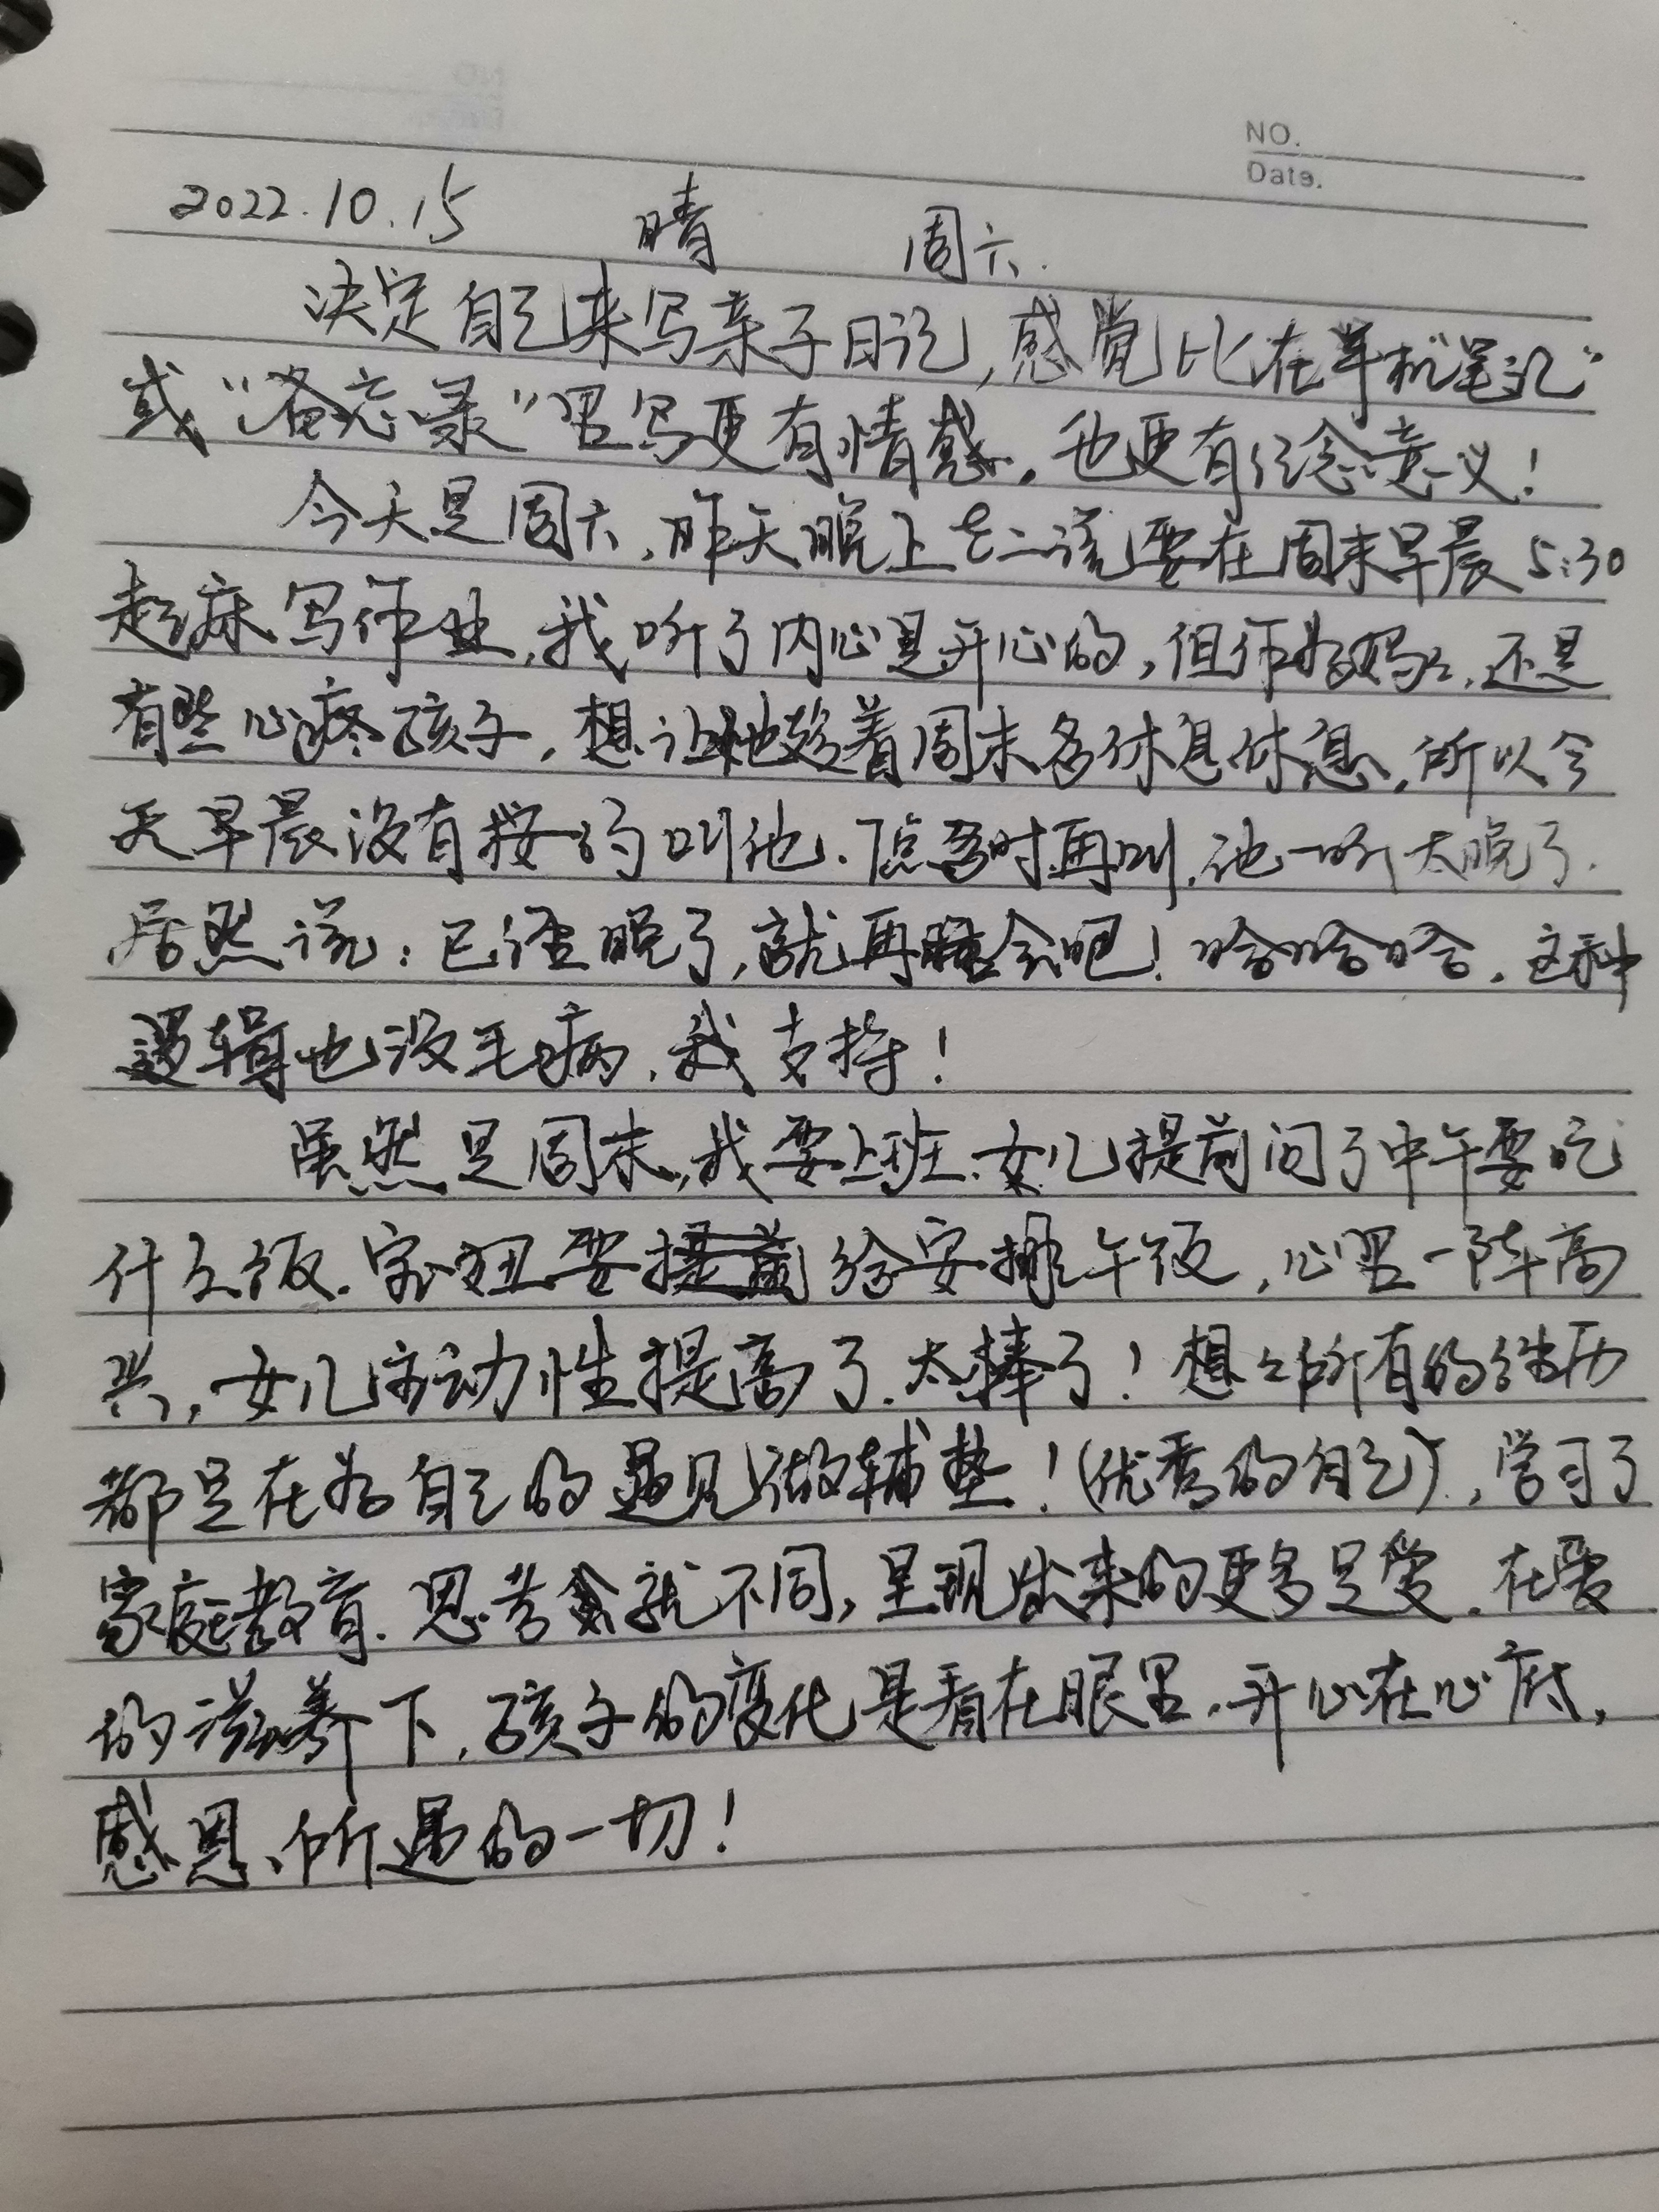 NO.
Date.
2022.10.15 晴 周六.
决定自己来写亲子日记,感觉比在手机笔记"
或"备忘录"里写更有情感,也更有纪念意义!
今天是周六,昨天晚上老二说要在周末早晨5:30
起床写作业,我听了内心是开心的,但作为妈妈,还是
有些心疼孩子,想让他趁着周末多休息休息,所以今
天早晨没有按约叫他.随时再叫,他一听太晚了.
居然说:已经晚了,就再睡会吧!哈哈哈,这种
逻辑也没毛病,我支持!
虽然是周末,我要上班.女儿提前问了中午要吃
什么饭.宝妞要给安排午饭,心里一阵高
兴,女儿主动性提高了.太棒了!想想所有的经历
都是在为自己的遇见做辅垫!(优秀的自己),学习了
家庭教育.思考就不同,呈现出来的更多是爱.在爱
的滋养下,孩子的变化是看在眼里.开心在心底,
感恩、所遇的一切!